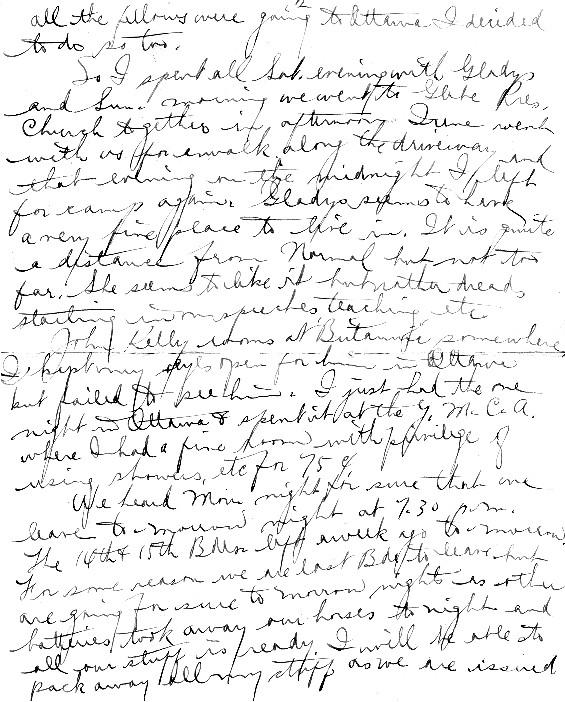 all the fellows were going to Ottawa I decided
to do so too.
So I spent all Sat. evening with Gladys
and Sun. morning we went to Glebe Pres.
Church together in afternoon Irene went
with us for a walk along the driveway and
that evening on the midnight I left
for camp again. Gladys seems to have
a very fine place to live in. It is quite
a distance from Normal but not too
far. She seems to like it but rather dreads
starting in on speeches teaching etc
John Kelly rooms at Britannia somewhere
I kept my eyes open for him in Ottawa
but failed to see him. I just had the one
night in Ottawa & spent it at the Y.M.C.A.
where I had a fine room with privilege of
using showers, etc for 75¢.
We heard Mon. night for sure that we
leave to-morrow night at 7.30 p.m.
The 14th & 15th Bdes left a week ago to-morrow.
For some reason we are last Bde to leave but
are going for sure to morrow night as other
batteries took away our horses to night and
all our stuff is ready. I will be able to
pack away all my stuff as we are issued